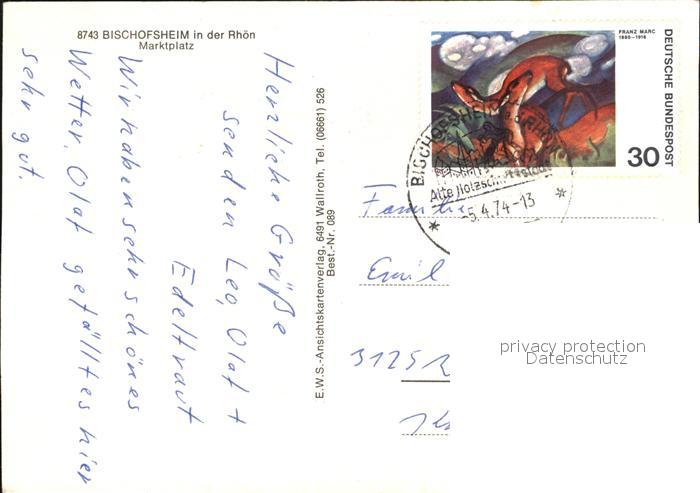 8743 BISCHOFSHEIM in der Rhön
Marktplatz
Herzliche Grüße
senden Leo, Olaf +
Edeltraut
Wir haben sehr schönes
Wetter. Olaf gefällt es hier
sehr gut.
E.W.S.-Ansichtskartenverlag, 6491 Wallroth, Tel. (06661) 526
Best.-Nr. 089
FRANZ MARC
1880-1916
DEUTSCHE BUNDESPOST
30
BISCHOFSHEIM
Alte Holzschnitzstadt
-5.4.74-13
Familie
Emil
3125
privacy protection
Datenschutz